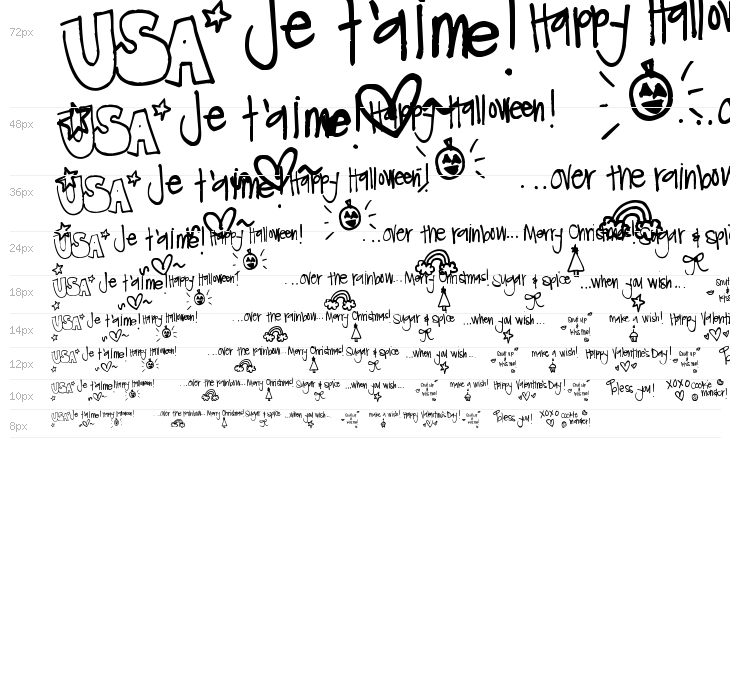 72px USA Je t'aime! Happy Hallow
48px USA Je t'aime! Happy Halloween! ...o
36px USA Je t'aime! Happy Halloween! ...over the rainbow
24px USA Je t'aime! Happy Halloween! ...over the rainbow... Merry Christmas! Sugar & spi
18px USA Je t'aime! Happy Halloween! ...over the rainbow... Merry Christmas! Sugar & spice ...when you wish...
14px USA Je t'aime! Happy Halloween! ...over the rainbow... Merry Christmas! Sugar & spice ...when you wish... Shut up & kiss me! make a wish! Happy Valentin
12px USA Je t'aime! Happy Halloween! ...over the rainbow... Merry Christmas! Sugar & spice ...when you wish... Shut up & kiss me! make a wish! Happy Valentine's Day! Shut up & kiss me!
10px USA Je t'aime! Happy Halloween! ...over the rainbow... Merry Christmas! Sugar & spice ...when you wish... Shut up & kiss me! make a wish! Happy Valentine's Day! Shut up & kiss me! bless you! XOXO cookie monster!
8px USA Je t'aime! Happy Halloween! ...over the rainbow... Merry Christmas! Sugar & spice ...when you wish... Shut up & kiss me! make a wish! Happy Valentine's Day! Shut up & kiss me! bless you! XOXO cookie monster!